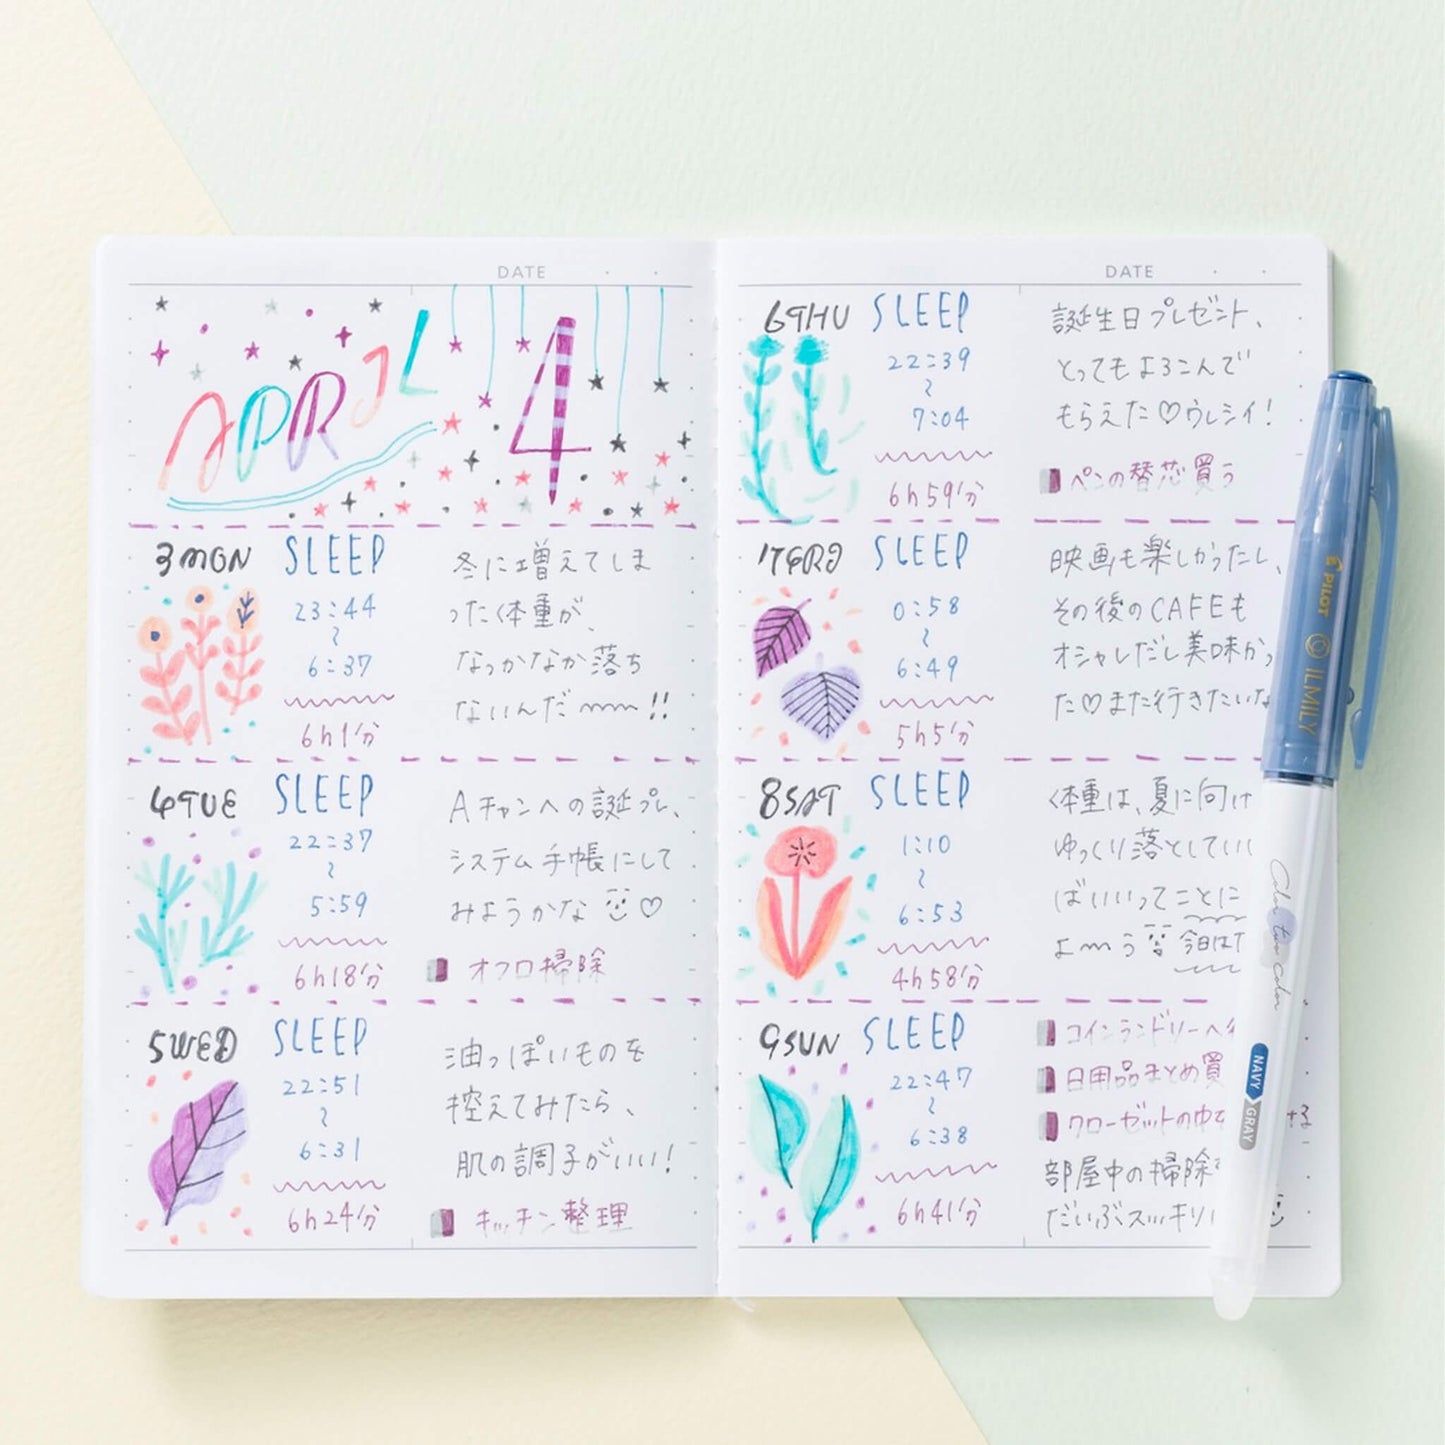 DATE
APRIL 4
3 MON
SLEEP
23:44
~
6:37
6h1分
冬に増えてしま
った体重が、
なっかなか落ち
ないんだ〜〜!!
4 TUE
SLEEP
22:37
~
5:59
6h18分
Aチャンへの誕プレ、
システム手帳にして
みようかな ♡
オフロ掃除
5 WED
SLEEP
22:51
~
6:31
6h24分
油っぽいものを
控えてみたら、
肌の調子がいい!
キッチン整理
DATE
6 THU
SLEEP
22:39
~
7:04
6h59分
誕生日プレゼント、
とってもよろこんで
もらえた♡ウレシイ!
ペンの替芯買う
7 FRI
SLEEP
0:58
~
6:49
5h5分
映画も楽しかったし、
その後のCAFEも
オシャレだし美味かっ
た♡また行きたいな
8 SAT
SLEEP
1:10
~
6:53
4h58分
体重は、夏に向け
ゆっくり落としてい
ばいいってことに
よ〜う 今日は
9 SUN
SLEEP
22:47
~
6:38
6h41分
コインランドリーへ
日用品まとめ買
クローゼットの中
部屋中の掃除
だいぶスッキリ
PILOT ILMILY
Color two color
NAVY GRAY